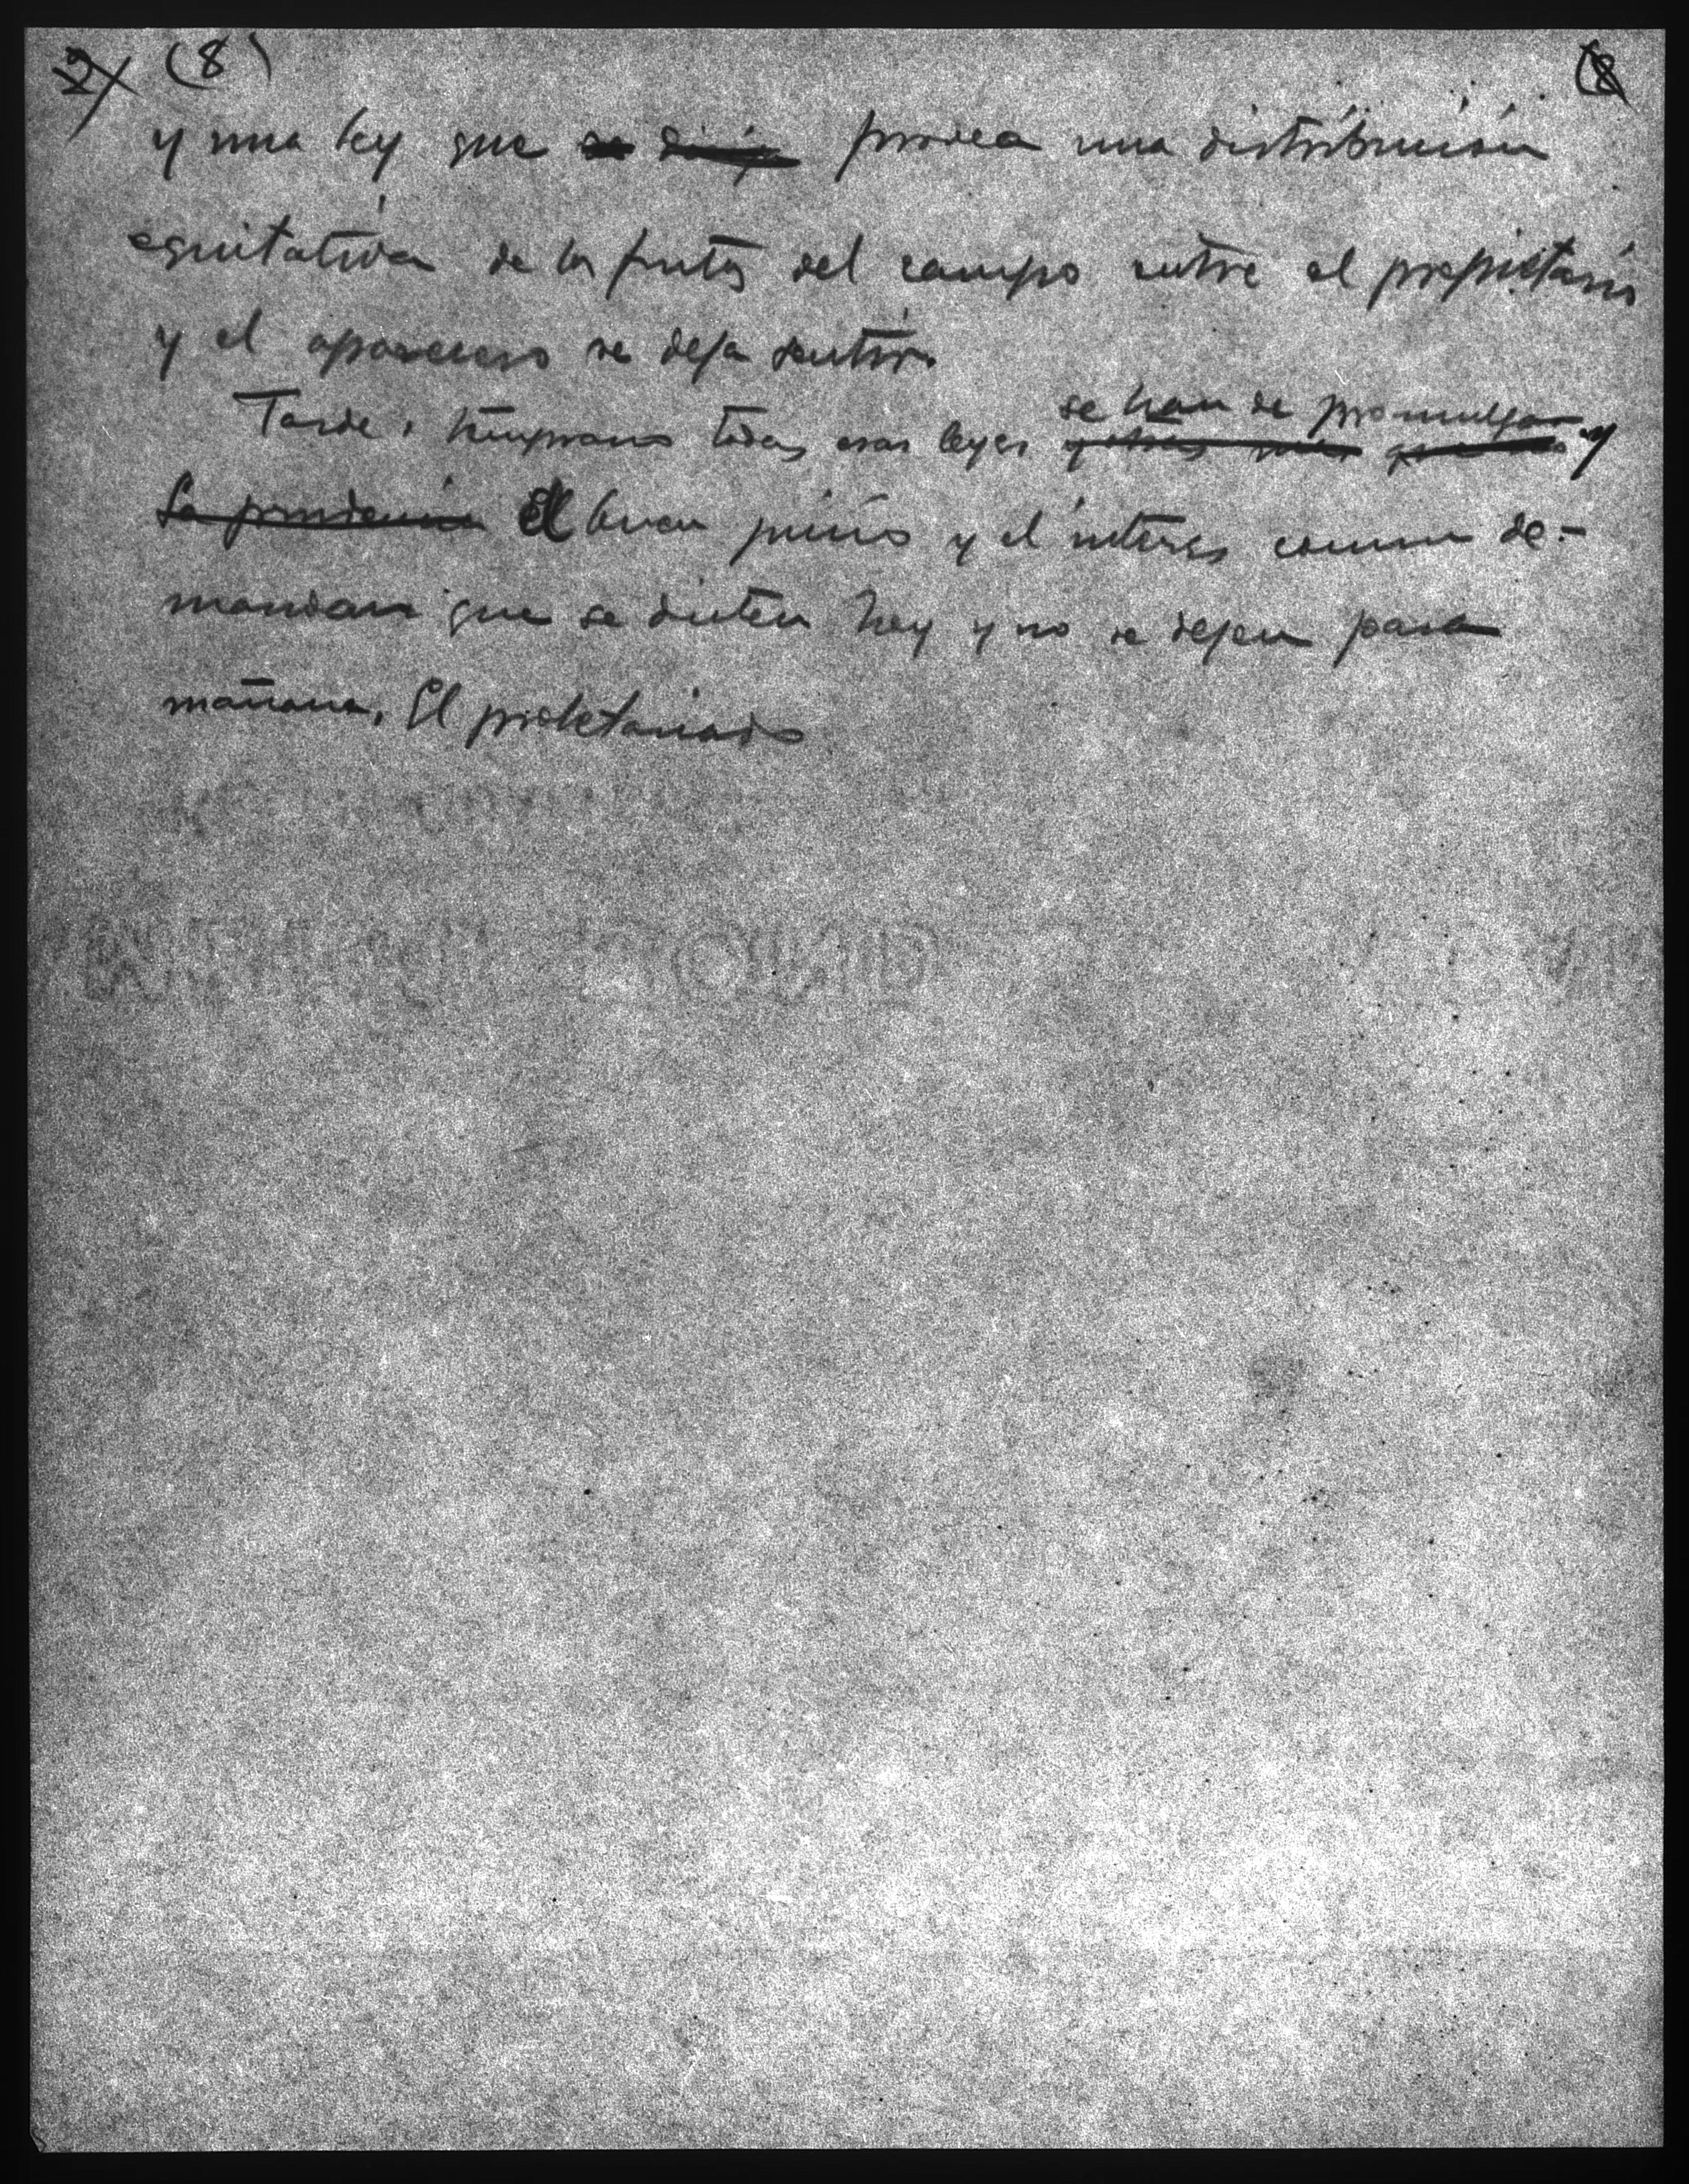 (8) (8
y una ley que provea una distribución
equitativa de los frutos del campo entre el propietario
y el aparcero se deja sentir.
se han de promulgar y
Tarde o temprano todas esas leyes
La prudencia El buen juicio y el interes comun de-
mandan que se dicten hoy y no se dejen para
mañana. El proletariado